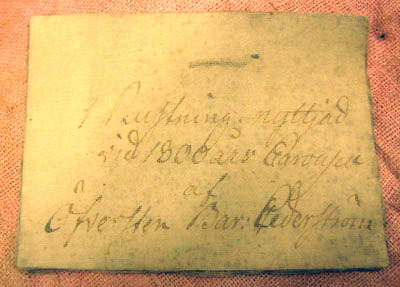 1 Rustning nyttjad
vid 1800 års Carousel
af
Öfversten Bar: Cederström